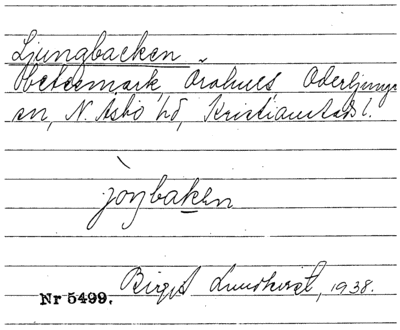 Ljungbacken
betesmark, Örahus, Oderljunga
sn, N. Åsbo hd, Kristianstads l.
jɔŋbakən
Birgit Lundkvist, 1938.
Nr 5499.